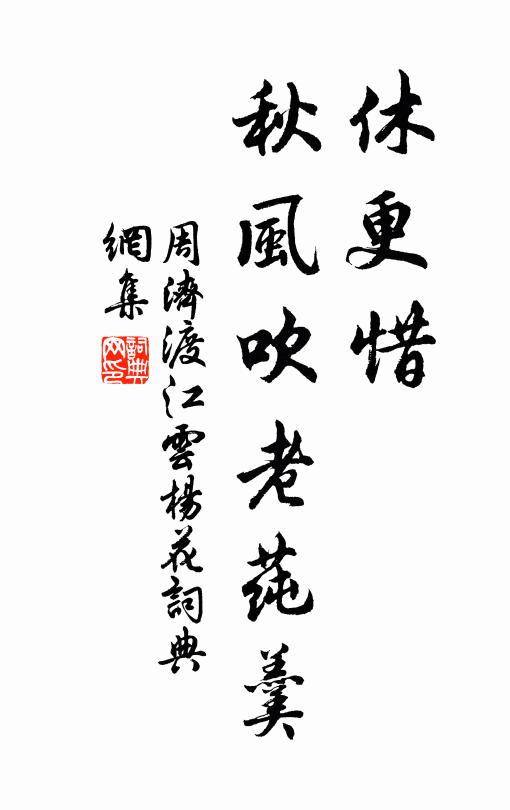 休更惜
秋風吹老蒓羹
周濟渡江雲楊花詞典
網集
詞典网印